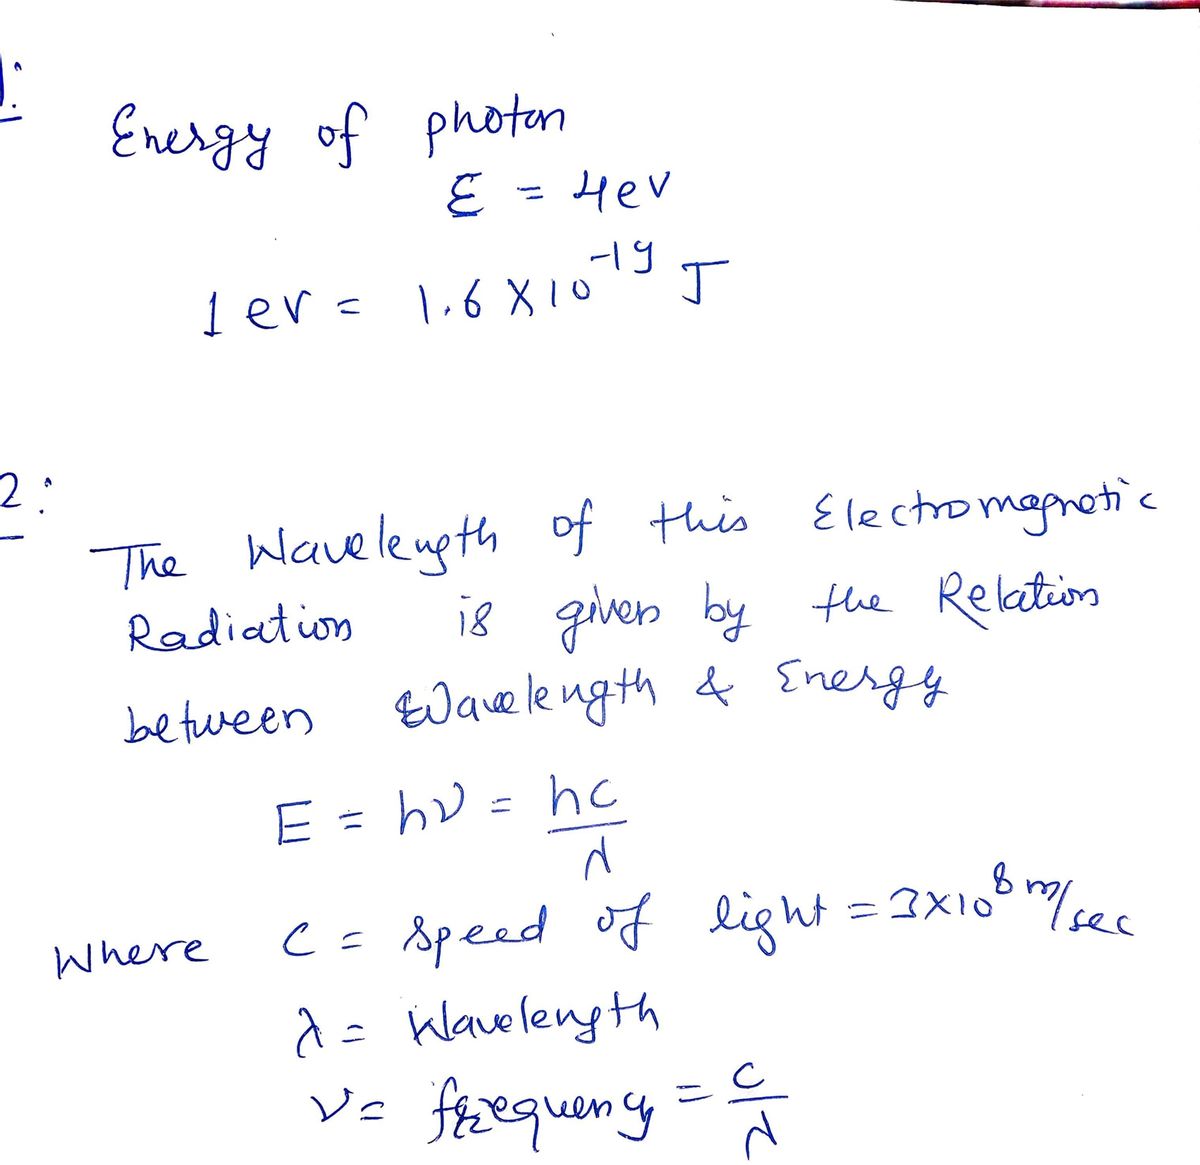 1:
Energy of photon
E = 4ev
1 ev = 1.6 X 10⁻¹⁹ J
2:
The Wavelength of this Electromagnetic
Radiation is given by the Relation
between Wavelength & Energy
E = hν = hc/λ
Where c = speed of light = 3×10⁸ m/sec
λ = Wavelength
ν = frequency = c/λ